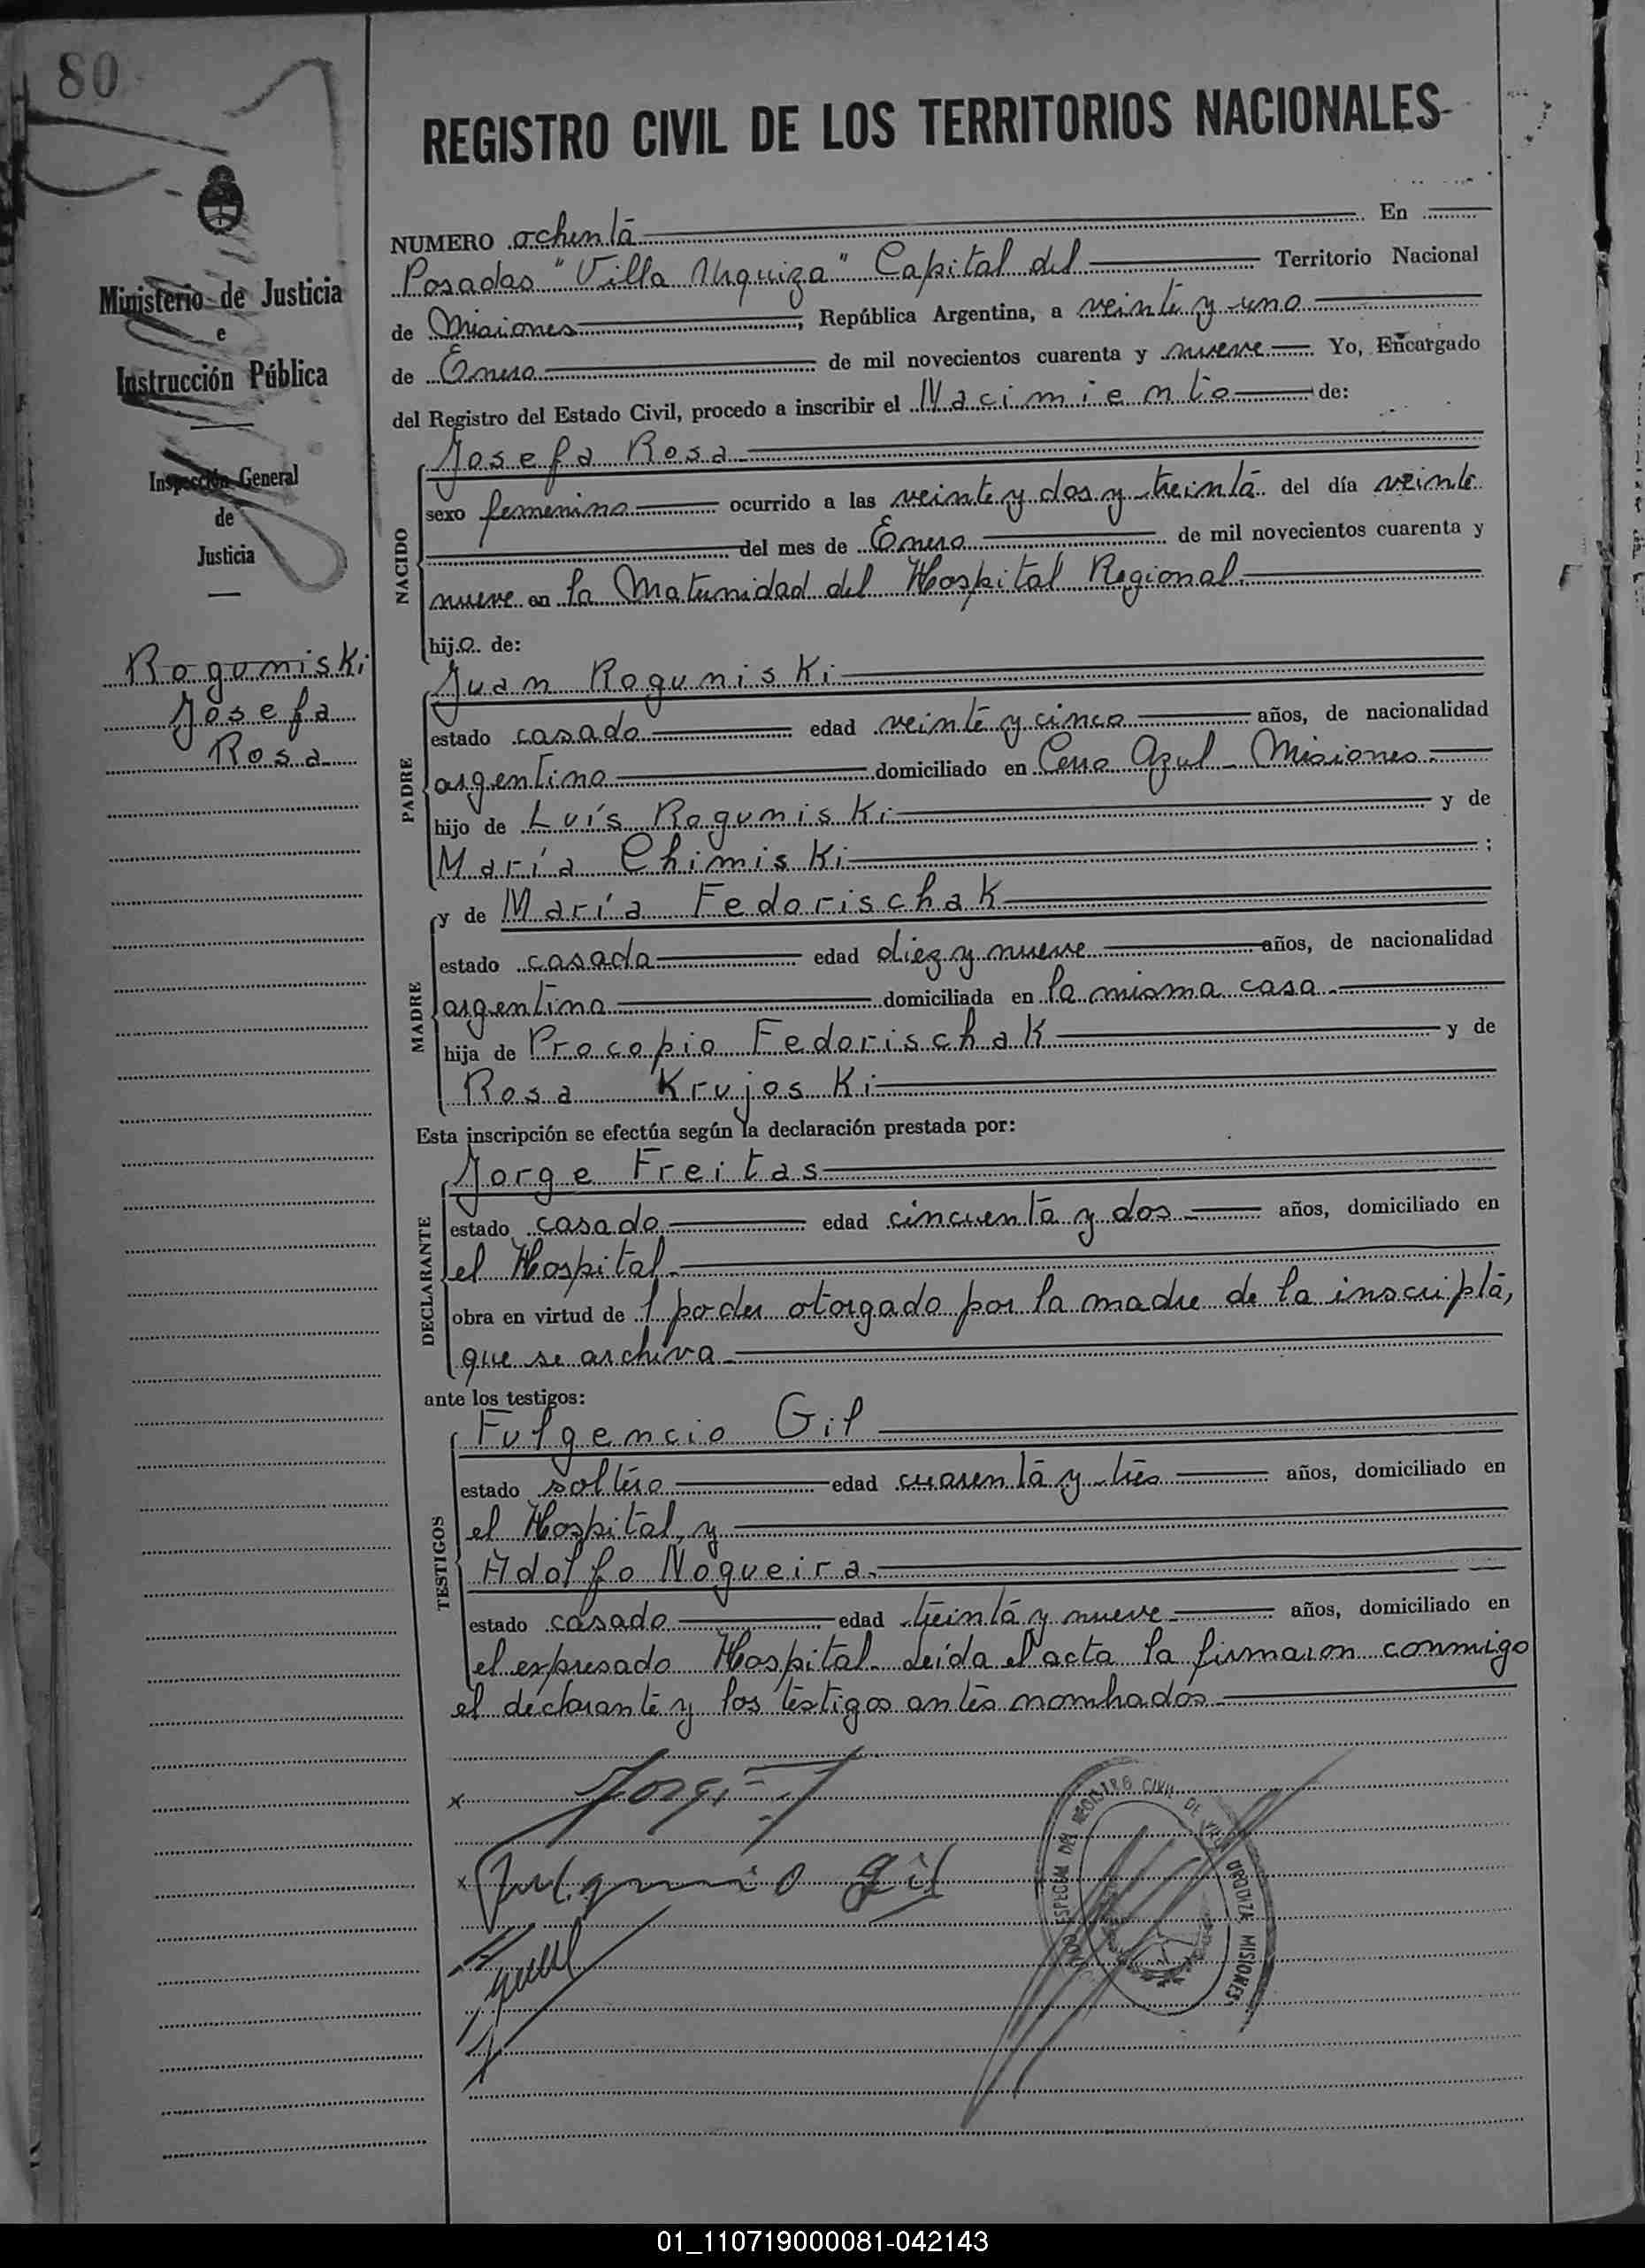 80
REGISTRO CIVIL DE LOS TERRITORIOS NACIONALES
Ministerio de Justicia
e
Instrucción Pública
Inspección General
de
Justicia
Roguniski
Josefa
Rosa
NUMERO ochenta En
Posadas "Villa Urquiza" Capital del Territorio Nacional
de Misiones, República Argentina, a veinte y uno
de Enero de mil novecientos cuarenta y nueve Yo, Encargado
del Registro del Estado Civil, procedo a inscribir el Nacimiento de:
NACIDO
Josefa Rosa
sexo femenino ocurrido a las veinte y dos y treinta del día veinte
del mes de Enero de mil novecientos cuarenta y
nueve en la Maternidad del Hospital Regional
hijo de:
PADRE
Juan Roguniski
estado casado edad veinte y cinco años, de nacionalidad
argentino domiciliado en Cerro Azul - Misiones.
hijo de Luís Roguniski y de
María Chimiski ;
MADRE
y de María Fedorischak
estado casada edad diez y nueve años, de nacionalidad
argentina domiciliada en la misma casa
hija de Procopio Fedorischak y de
Rosa Krujoski
Esta inscripción se efectúa según la declaración prestada por:
DECLARANTE
Jorge Freitas
estado casado edad cincuenta y dos años, domiciliado en
el Hospital
obra en virtud de 1 poder otorgado por la madre de la inscripta,
que se archiva
ante los testigos:
TESTIGOS
Fulgencio Gil
estado soltero edad cuarenta y tres años, domiciliado en
el Hospital, y
Adolfo Nogueira
estado casado edad treinta y nueve años, domiciliado en
el expresado Hospital. Leída el acta la firmaron conmigo
el declarante y los testigos antes nombrados
x
x Fulgencio Gil
ESPECIAL DEL REGISTRO CIVIL DE VILLA URQUIZA MISIONES
01_110719000081-042143